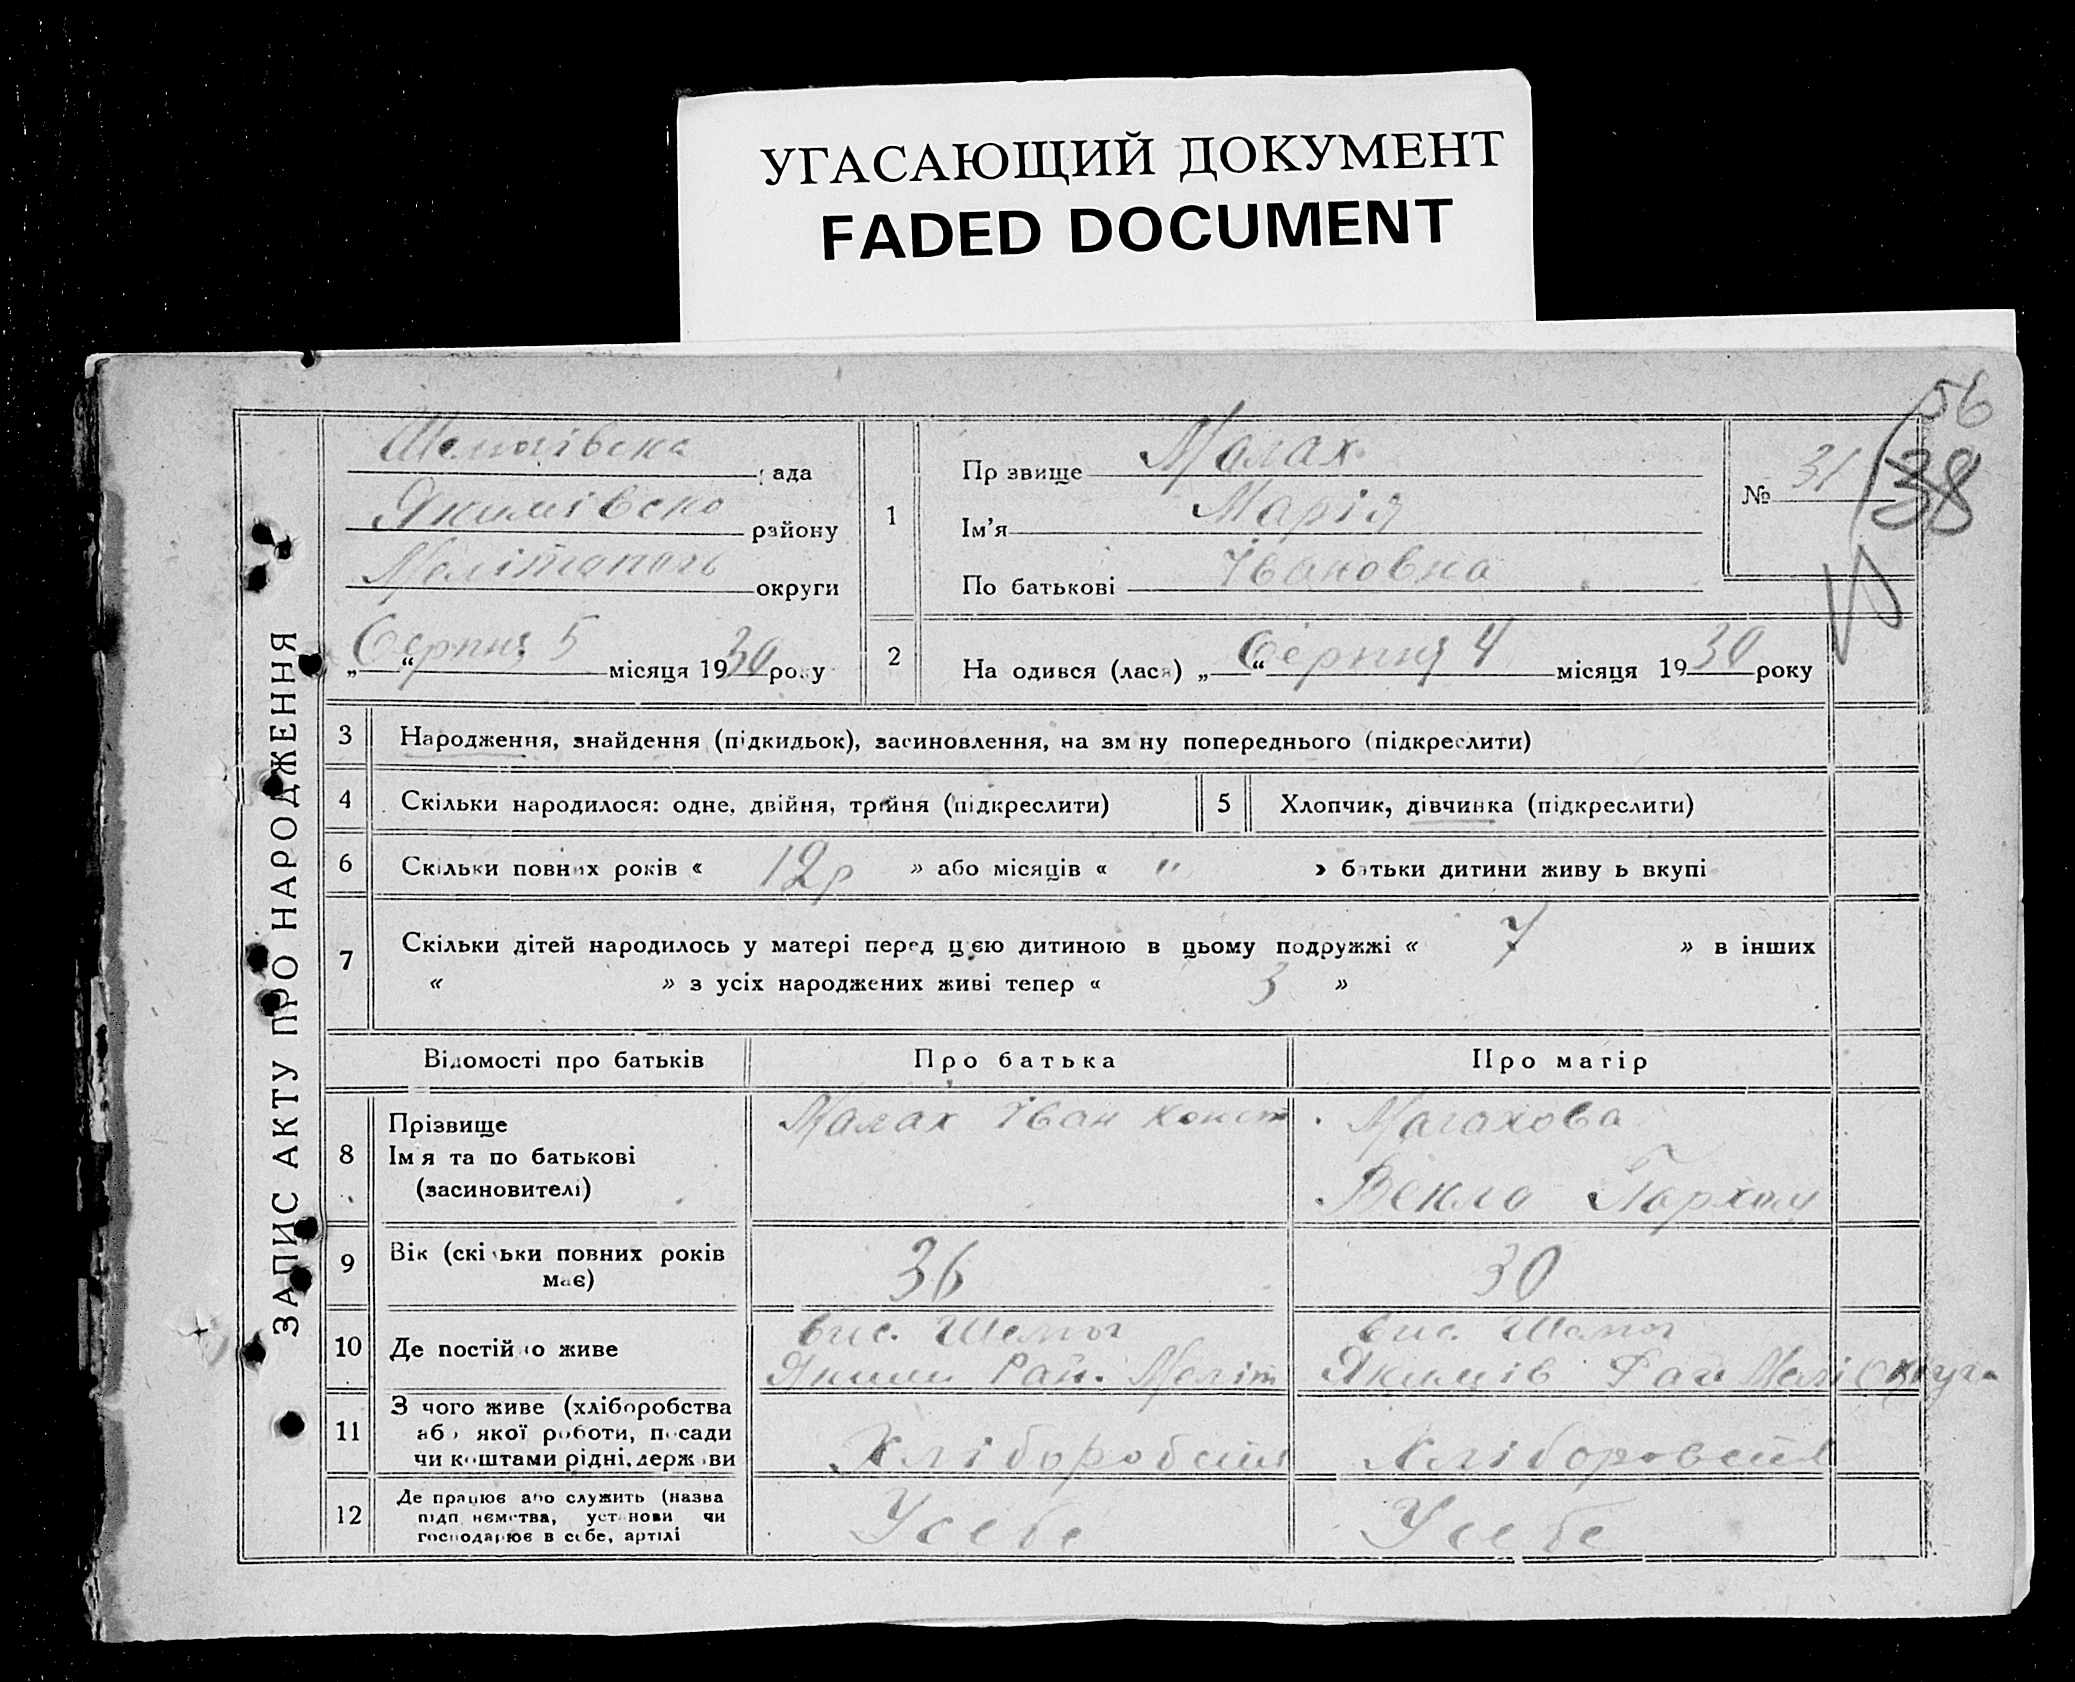 УГАСАЮЩИЙ ДОКУМЕНТ
FADED DOCUMENT
56
38
ЗАПИС АКТУ ПРО НАРОДЖЕННЯ
рада
Якимівско району
округи
„ “ Серпня 5 місяця 1930 року
1
Прізвище Малах
Ім’я Марія
По батькові Івановна
№ 31
2
Народився (лася) „ “ Серпня 4 місяця 1930 року
3 Народження, знайдення (підкидьок), засиновлення, на зміну попереднього (підкреслити)
4 Скільки народилося: одне, двійня, трійня (підкреслити)
5 Хлопчик, дівчинка (підкреслити)
6 Скільки повних років « 12р » або місяців « " » батьки дитини живуть вкупі
7 Скільки дітей народилось у матері перед цією дитиною в цьому подружжі « 7 » в інших
« » з усіх народжених живі тепер « 3 »
Відомості про батьків Про батька Про матір
8 Прізвище
Ім’я та по батькові
(засиновителі)
Малах Іван Конст
Малахова
Векла Пархом
9 Вік (скільки повних років
має)
36 30
10 Де постійно живе
вис. Шелюг
Яким Рай. Меліт
вис. Шелюг
Якимів Рай Мелі Округа
11 З чого живе (хліборобства
або якої роботи, посади
чи коштами рідні, держави
Хлібороbств Хліборовств
12 Де працює або служить (назва
підприємства, установи чи
господарює в себе, артілі
Усебе Усебе